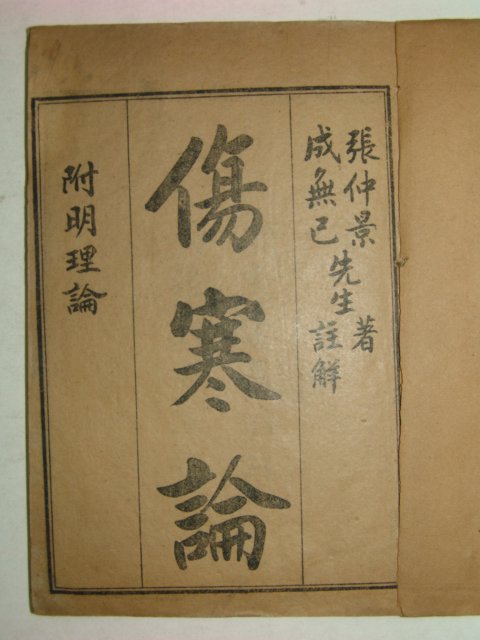 張仲景
成無已
先生
著
註解
傷寒論
附明理論